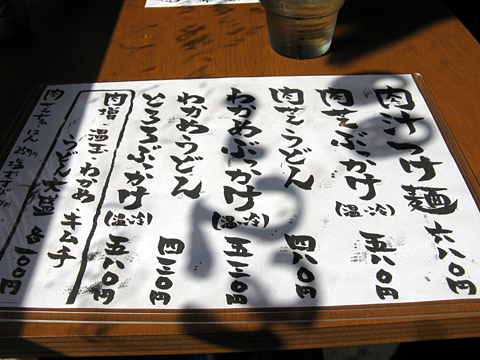 肉汁つけ麺 六八〇円
肉玄ぶっかけ(温・冷) 五八〇円
肉玄うどん 四八〇円
わかめぶっかけ(温・冷) 五三〇円
わかめうどん 四三〇円
とろろぶっかけ(温・冷) 五八〇円
肉増・温玉・わかめ
うどん大盛 キムチ
各一〇〇円